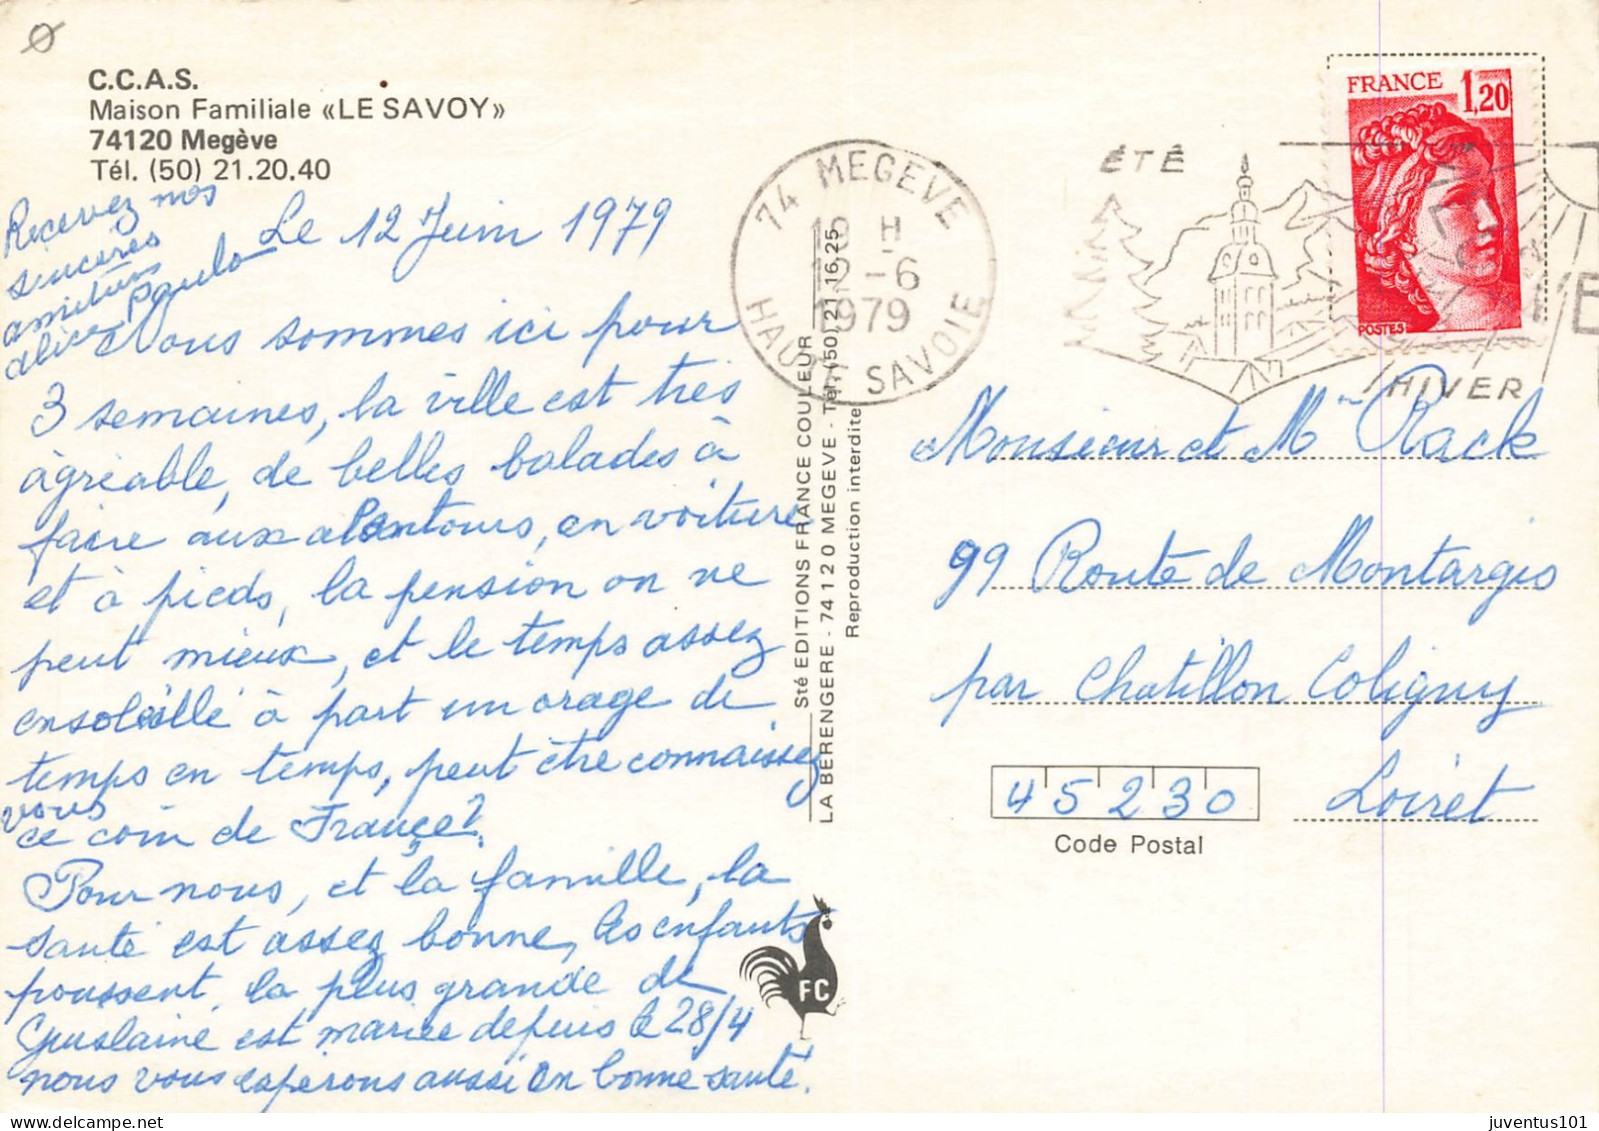 C.C.A.S.
Maison Familiale «LE SAVOY»
74120 Megève
Tél. (50) 21.20.40
Le 12 Juin 1979
Nous sommes ici pour
3 semaines, la ville est très
agréable, de belles balades à
faire aux alentours, en voiture
et à pieds, la pension on ne
peut mieux, et le temps assez
ensoleillé à part un orage de
temps en temps, peut être connaissez
vous
ce coin de France?
Pour nous, et la famille, la
santé est assez bonne, les enfants
poussent, la plus grande de
Guislaine est mariée depuis le 28/4
nous vous esperons aussi en bonne santé.
Recevez nos
sincères
amitiés
alice Paulo
Sté EDITIONS FRANCE COULEUR
LA BERENGERE - 74120 MEGEVE - Tél. (50) 21.16.25
Reproduction interdite
FC
74 MEGEVE
19 H
12-6
1979
HAUTE SAVOIE
ÉTÉ
HIVER
FRANCE 1,20
POSTES
Monsieur et Mme Rack
99 Route de Montargis
par Chatillon Coligny
45230 Loiret
Code Postal
juventus101